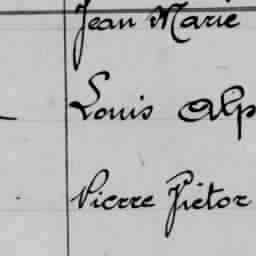 Jean Marie
Louis Alp
Pierre Victor